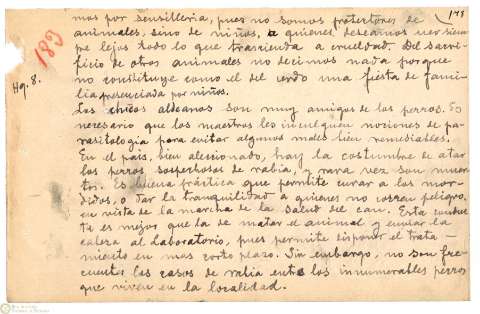 178
183
Hg. 8.
mos por sensillería, pues no somos protectores de
animales, sino de niños, a quienes deseamos ver siem
pre lejos todo lo que trascienda a crueldad. Del sacri-
ficio de otros animales no decimos nada porque
no constituye como el del cerdo una fiesta de fami-
lia presenciada por niños.
Los chicos aldeanos son muy amigos de los perros. Es
necesario que los maestros les inculquen nociones de pa-
rasitología para evitar algunos males bien remediables.
En el país, bien aleccionado, hay la costumbre de atar
los perros sospechosos de rabia, y rara vez son muer-
tos. Es buena práctica que permite curar a los mor-
didos, o dar la tranquilidad a quienes no corran peligro,
en vista de la marcha de la salud del can. Esta conduc
ta es mejor que la de matar el animal y enviar la
cabeza al Laboratorio, pues permite disponer el trata-
miento en mas corto plazo. Sin embargo, no son fre-
cuentes los casos de rabia entre los innumerables perros
que viven en la localidad.